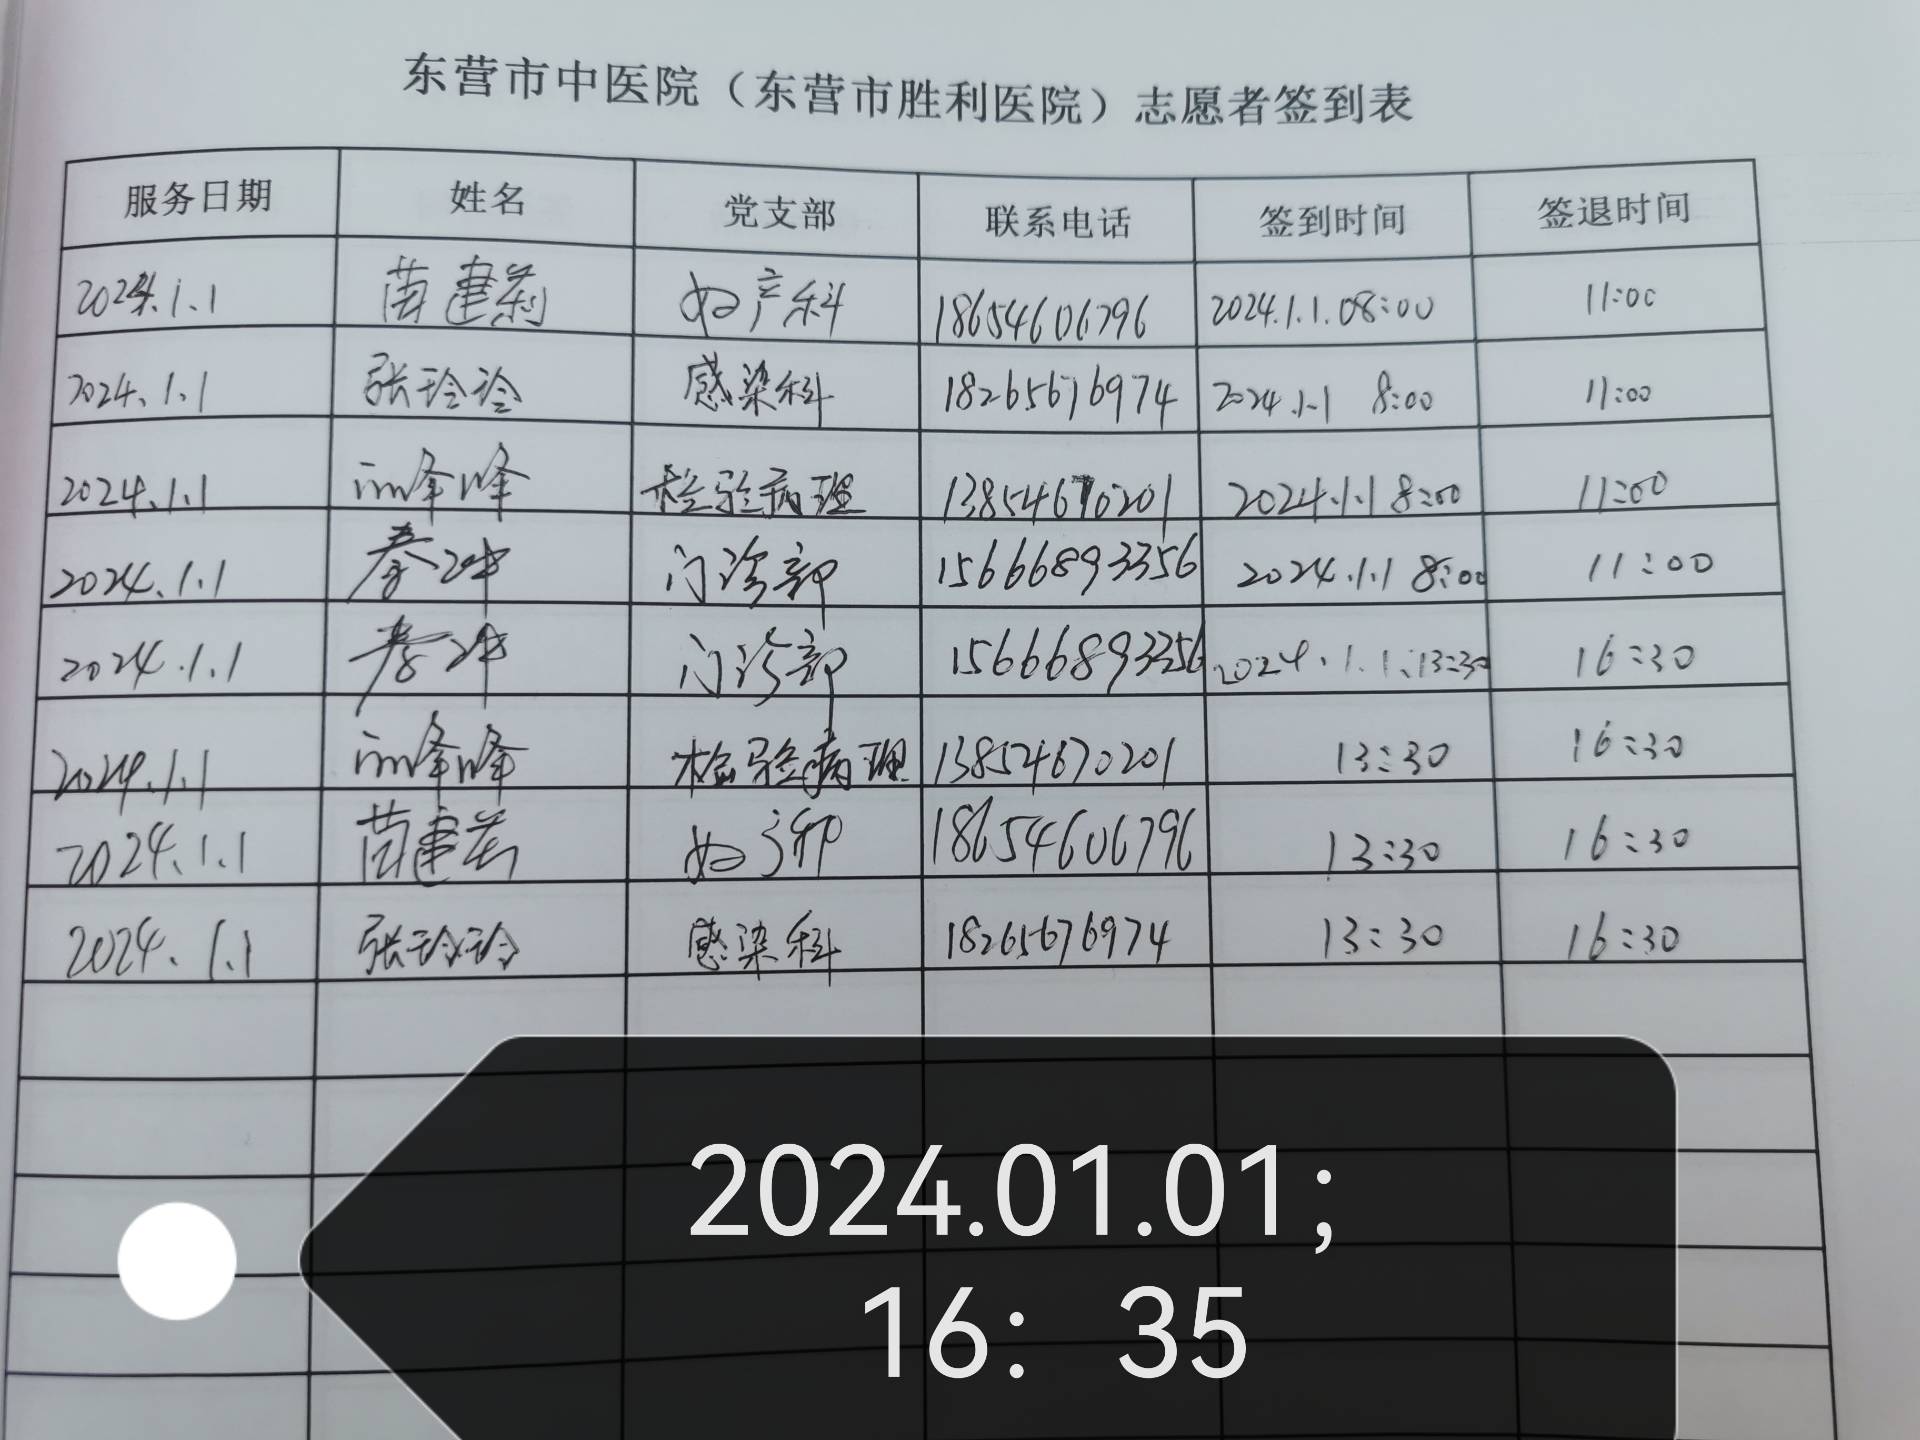 东营市中医院（东营市胜利医院）志愿者签到表
服务日期 姓名 党支部 联系电话 签到时间 签退时间
2024.1.1 苗建莉 妇产科 18654606796 2024.1.1.08:00 11:00
2024.1.1 张玲玲 感染科 18265676974 2024.1.1 8:00 11:00
2024.1.1 峰峰 检验病理 13854670201 2024.1.1 8:00 11:00
2024.1.1 秦冲 门诊部 15666893356 2024.1.1 8:00 11:00
2024.1.1 秦冲 门诊部 15666893356 2024.1.1.13:30 16:30
2024.1.1 峰峰 检验病理 13854670201 13:30 16:30
2024.1.1 苗建莉 妇产科 18654606796 13:30 16:30
2024.1.1 张玲玲 感染科 18265676974 13:30 16:30
2024.01.01;
16：35